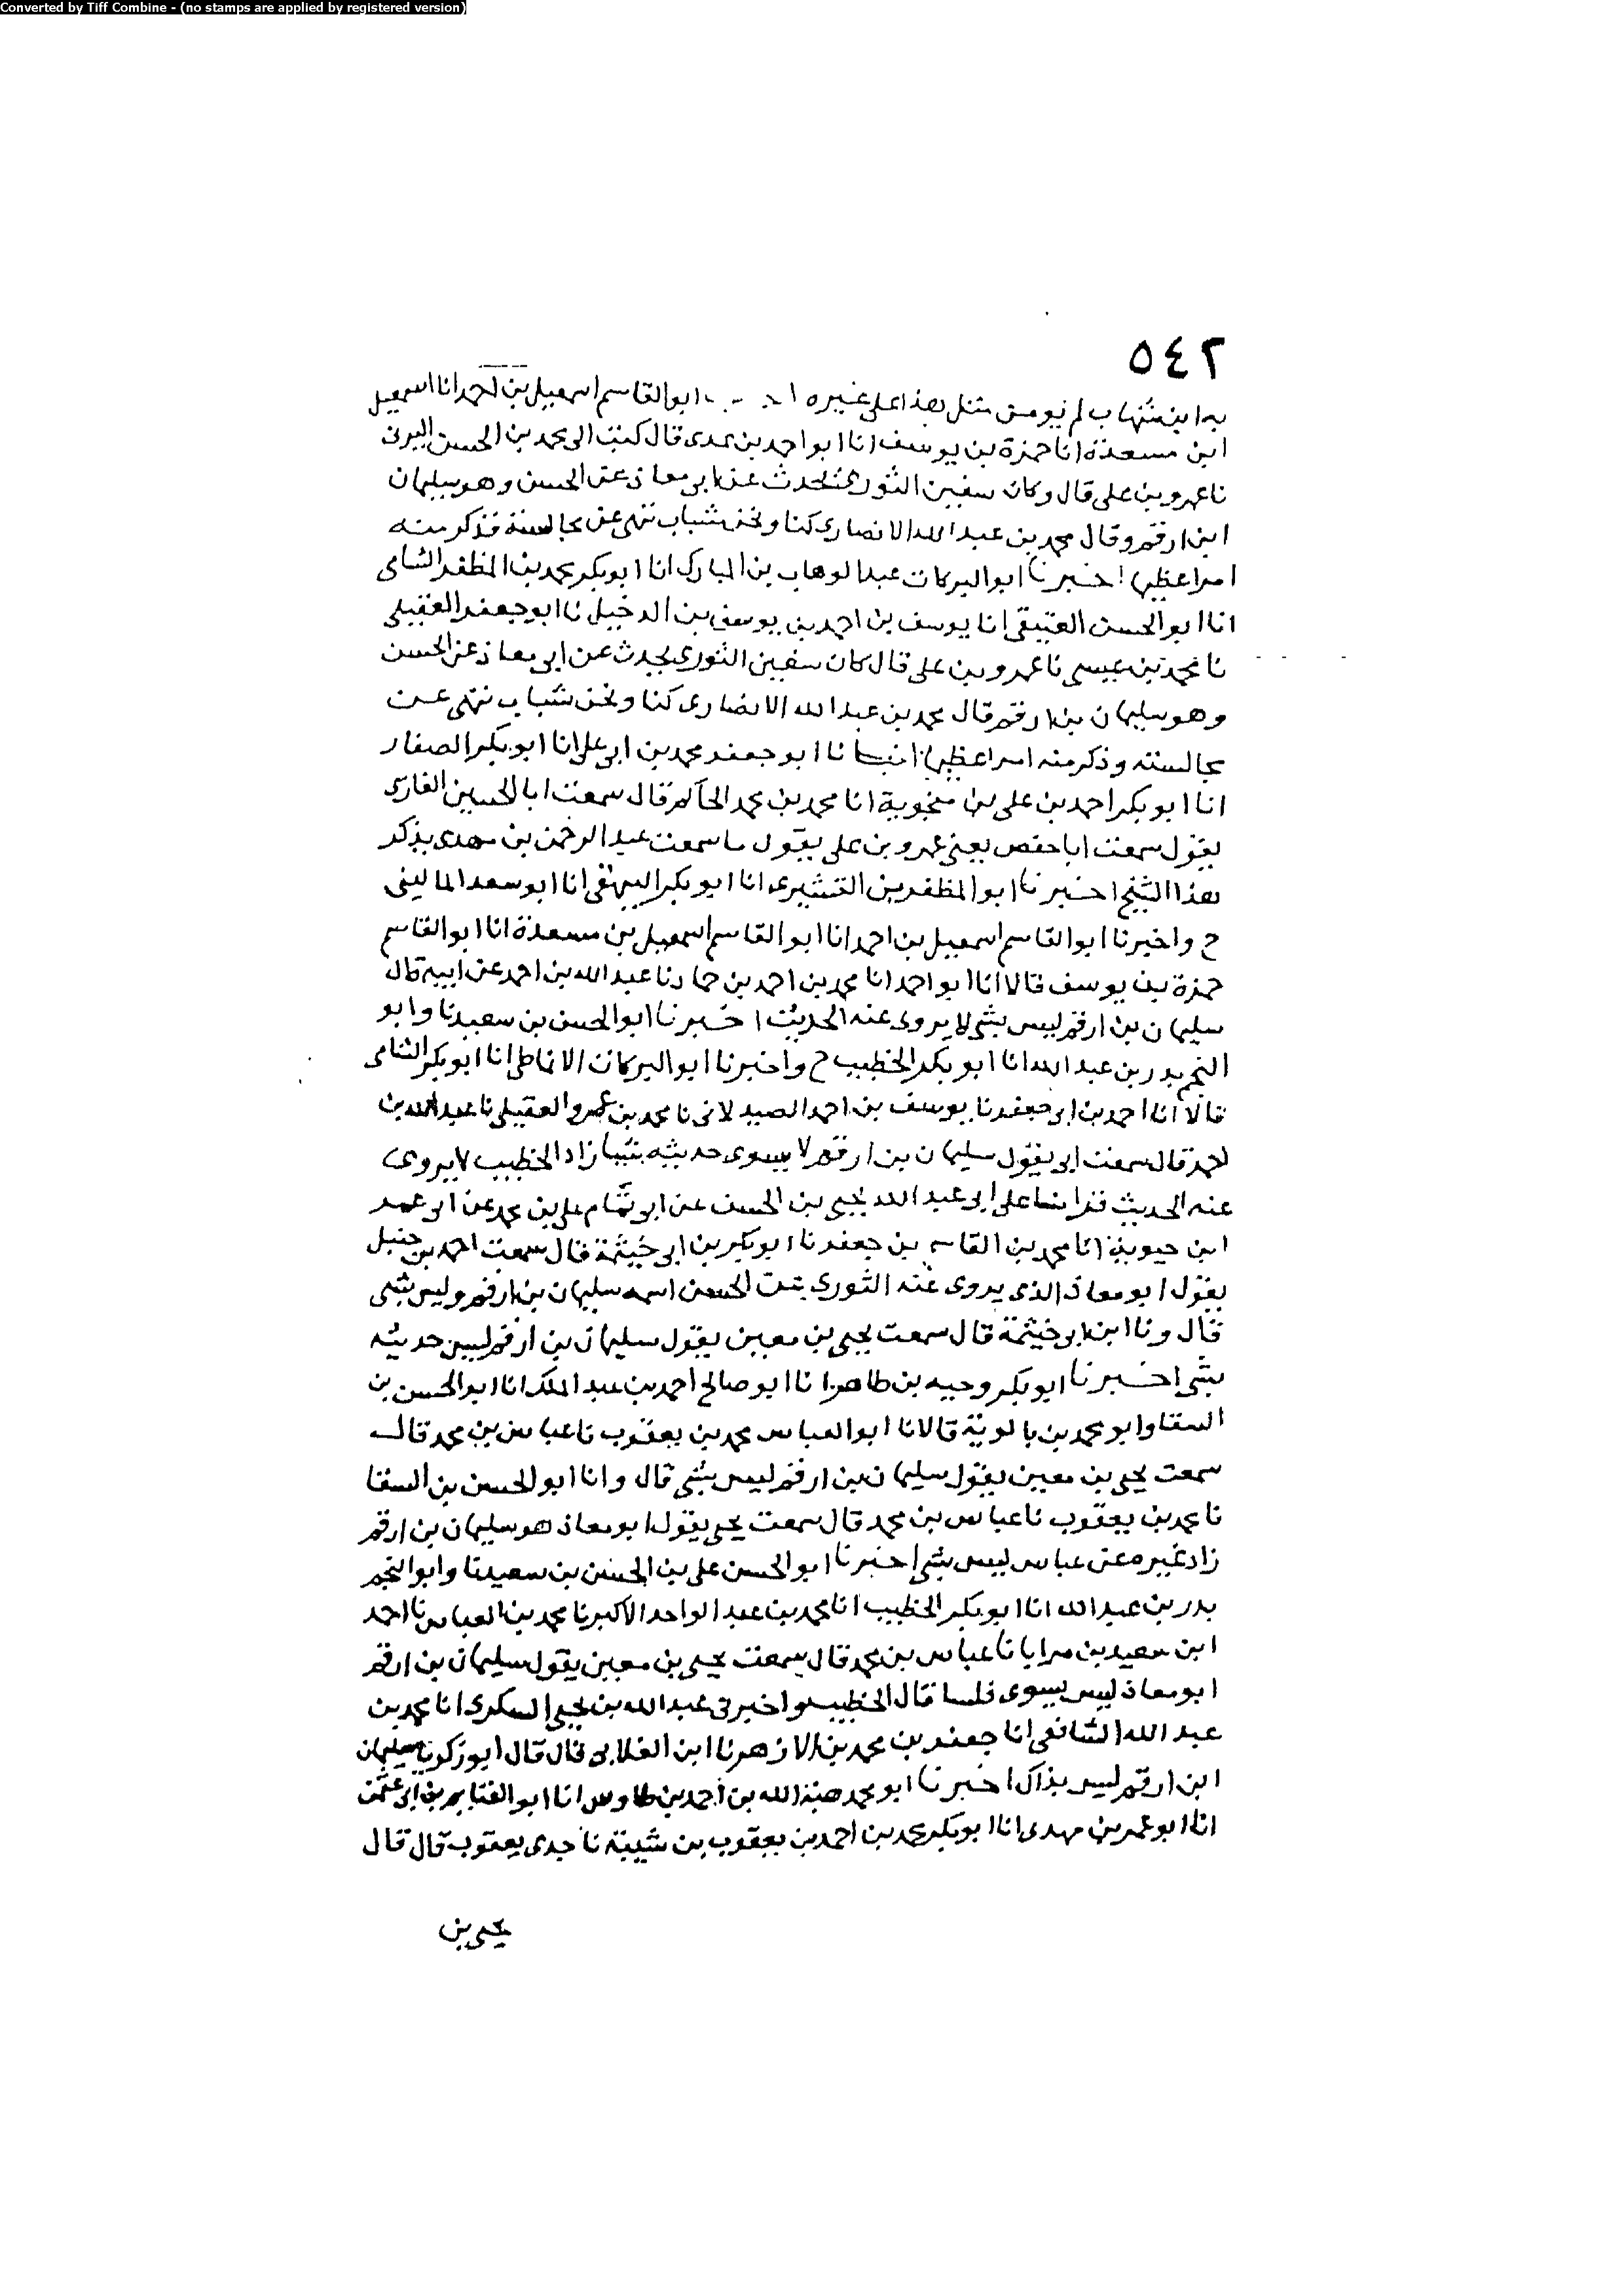 Converted by Tiff Combine - (no stamps are applied by registered version)
٥٤٢
به ابن شهاب لم يومن مثل هذا على غيره ابو القاسم اسمعيل بن احمد انا اسمعيل
ابن مسعدة انا حمزة بن يوسف انا ابو احمد بن عدى قال كتب الى محمد بن الحسن البرى
نا عمرو بن على قال وكان سفين الثورى يحدث عن ابى معاذ عن الحسن وهو سليمان
ابن ارقم وقال محمد بن عبد الله الانصارى كنا ونحن شباب ننهى عن مجالسته فذكر منه
امرا عظيما اخبرنا ابو البركات عبد الوهاب بن المبارك انا ابو بكر محمد بن المظفر الشامى
انا ابو الحسن العتيقى انا يوسف بن احمد بن يوسف بن الدخيل نا ابو جعفر العقيلى
نا محمد بن عيسى نا عمرو بن على قال كان سفين الثورى يحدث عن ابى معاذ عن الحسن
وهو سليمان بن ارقم قال محمد بن عبد الله الانصارى كنا ونحن شباب ننهى عن
مجالسته وذكر منه امرا عظيما انبانا ابو جعفر محمد بن ابى على انا ابو بكر الصفار
انا ابو بكر احمد بن على بن منجوية انا محمد بن محمد الحاكم قال سمعت ابا الحسين الغازى
يقول سمعت ابا حفص يعنى عمرو بن على يقول ما سمعت عبد الرحمن بن مهدى يذكر
هذا الشيخ اخبرنا ابو المظفر بن القشيرى انا ابو بكر البيهقى انا ابو سعد المالينى
ح واخبرنا ابو القاسم اسمعيل بن احمد انا ابو القاسم اسمعيل بن مسعدة انا ابو القاسم
حمزة بن يوسف قالا انا ابو احمد انا محمد بن احمد بن حماد نا عبد الله بن احمد عن ابيه قال
سليمان بن ارقم ليس بشى لا يروى عنه الحديث اخبرنا ابو الحسن بن سعيد نا وابو
النجم بدر بن عبد الله انا ابو بكر الخطيب ح واخبرنا ابو البركات الانماطى انا ابو بكر الشامى
قالا انا احمد بن ابى جعفر نا يوسف بن احمد الصيدلانى نا محمد بن عمرو العقيلى نا عبد الله بن
احمد قال سمعت ابى يقول سليمان بن ارقم لا يسوى حديثه شيا زاد الخطيب لا يروى
عنه الحديث قرانا على ابى عبد الله يحيى بن الحسن عن ابى تمام على بن محمد عن ابى عمر
ابن حيوية انا محمد بن القاسم بن جعفر نا ابو بكر بن ابى خيثمة قال سمعت احمد بن حنبل
يقول ابو معاذ الذى يروى عنه الثورى عن الحسن اسمه سليمان بن ارقم وليس بشى
قال ونا ابن ابى خيثمة قال سمعت يحيى بن معين يقول سليمان بن ارقم ليس حديثه
بشى اخبرنا ابو بكر وجيه بن طاهر انا ابو صالح احمد بن عبد الملك انا ابو الحسن بن
السقا وابو محمد بن بالوية قالا نا ابو العباس محمد بن يعقوب نا عباس بن محمد قال
سمعت يحيى بن معين يقول سليمان بن ارقم ليس بشى قال وانا ابو الحسن بن السقا
نا محمد بن يعقوب نا عباس بن محمد قال سمعت يحيى يقول ابو معاذ هو سليمان بن ارقم
زاد غيره عن عباس ليس بشى اخبرنا ابو الحسن على بن الحسن بن سعيد نا وابو النجم
بدر بن عبد الله انا ابو بكر الخطيب انا محمد بن عبد الواحد الاكبر نا محمد بن العباس نا احمد
ابن سعيد بن مرابا نا عباس بن محمد قال سمعت يحيى بن معين يقول سليمان بن ارقم
ابو معاذ ليس يسوى فلسا قال الخطيب واخبرنى عبد الله بن يحيى السكرى انا محمد بن
عبد الله الشافعى انا جعفر بن محمد بن الازهر نا ابن الغلابى قال قال ابو زكريا سليمان
ابن ارقم ليس بذاك اخبرنا ابو محمد هبة الله بن احمد بن طاوس انا ابو الغنايم بن ابى عثمن
انا ابو عمر بن مهدى انا ابو بكر محمد بن احمد بن يعقوب بن شيبة نا جدى يعقوب قال قال
يحيى بن